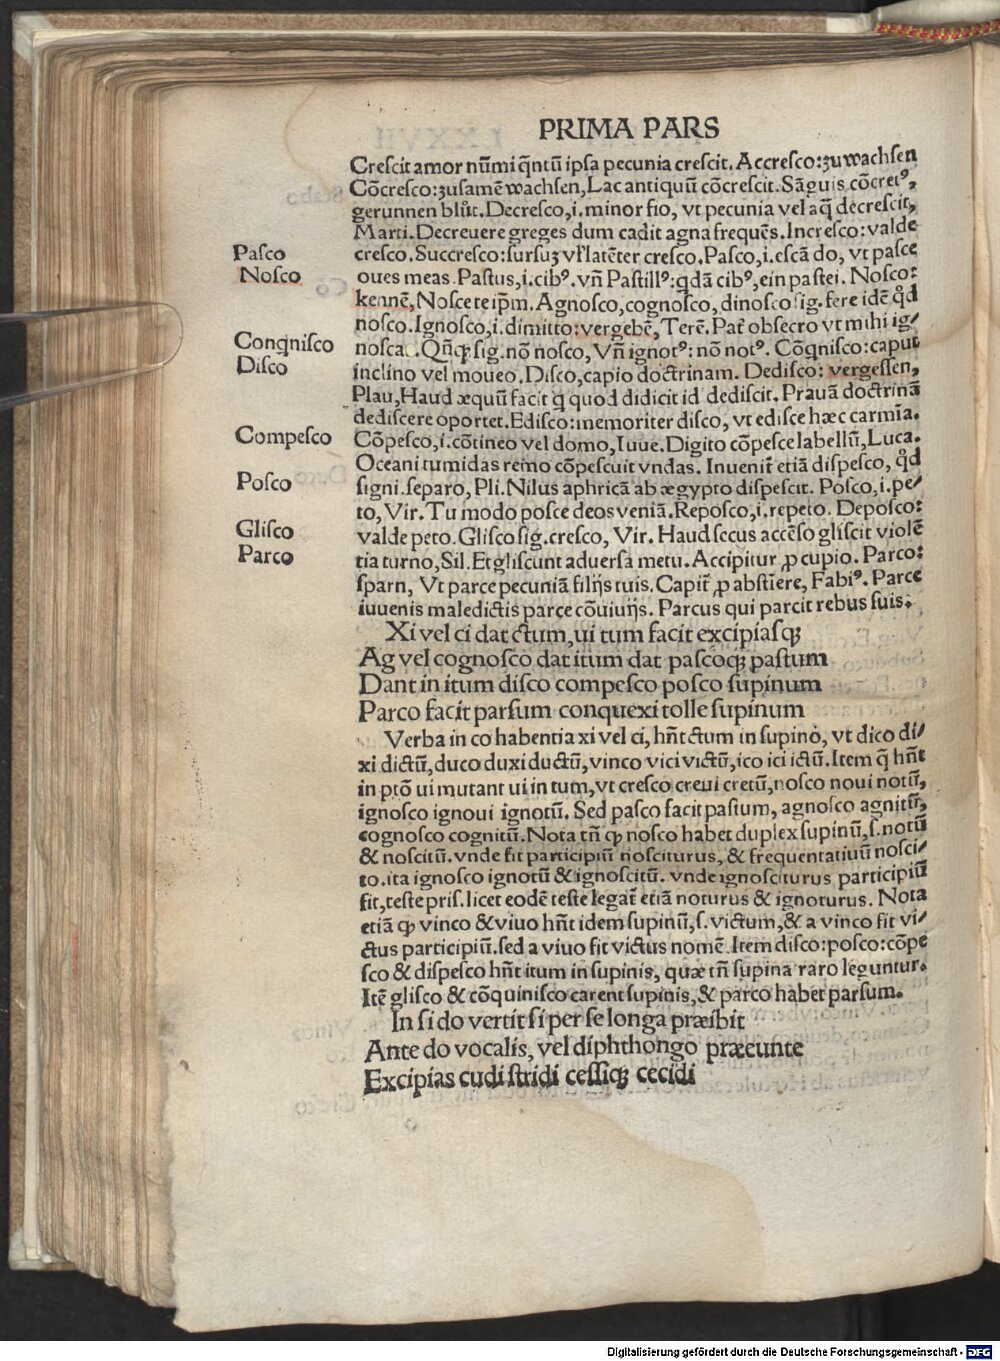 PRIMA PARS
Crescit amor nūmi q̄ntū ipsa pecunia crescit. Accresco: zuwachsen
Cōcresco: zusamē wachsen, Lac antiquū cōcrescit. Sāguis cōcretꝰ,
gerunnen blůt. Decresco, i. minor fio, vt pecunia vel aq̄ decrescit,
Marti. Decreuere greges dum cadit agna frequēs. Incresco: valde
Pasco
cresco. Succresco: sursuȝ vl̓ latēter cresco. Pasco, i. escā do, vt pasce
Nosco
oues meas. Pastus, i. cibꝰ. vn̄ Pastillꝰ: qdā cibꝰ, ein pastei. Nosco:
kennē, Nosce teip̄m. Agnosco, cognosco, dinosco sig. fere idē qd̓
nosco. Ignosco, i. dimitto: vergebē, Terē. Pat̓ obsecro vt mihi ig/
Conqnisco
nosca. Qn̄qꝫ sig. nō nosco, Vn̄ ignotꝰ: nō notꝰ. Cōqnisco: caput
Disco
inclino vel moueo. Disco, capio doctrinam. Dedisco: vergessen,
Plau, Haud æquū facit q quod didicit id dediscit. Prauā doctrinā
dediscere oportet. Edisco: memoriter disco, vt edisce hæc carmīa.
Compesco
Cōpesco, i. cōtineo vel domo, Iuue. Digito cōpesce labellū, Luca.
Oceani tumidas remo cōpescuit vndas. Inuenit̓ etiā dispesco, qd̓
Posco
signi. separo, Pli. Nilus aphricā ab ægypto dispescit. Posco, i. pe/
to, Vir. Tu modo posce deos veniā. Reposco, i. repeto. Deposco:
Glisco
valde peto. Glisco sig. cresco, Vir. Haud secus accēso gliscit violē
Parco
tia turno, Sil. Et gliscunt aduersa metu. Accipitur ꝓ cupio. Parco:
sparn, Vt parce pecuniā filijs tuis. Capit̓ ꝓ abstiere, Fabiꝰ. Parce
iuuenis maledictis parce cōuiuijs. Parcus qui parcit rebus suis.
Xi vel ci dat ctum, ui tum facit excipiasqꝫ
Ag vel cognosco dat itum dat pascoqꝫ pastum
Dant in itum disco compesco posco supinum
Parco facit parsum conquexi tolle supinum
Verba in co habentia xi vel ci, hn̄t ctum in supino, vt dico di/
xi dictū, duco duxi ductū, vinco vici victū, ico ici ictū. Item q̄ hn̄t
in ptō ui mutant ui in tum, vt cresco creui cretū, nosco noui notū,
ignosco ignoui ignotū. Sed pasco facit pastum, agnosco agnitū,
cognosco cognitū. Nota tn̄ ꝙ nosco habet duplex supinū, s. notū
& noscitū. vnde fit participiū nosciturus, & frequentatiuū nosci/
to. ita ignosco ignotū & ignoscitū. vnde ignosciturus participiū
fit, teste pris. licet eodē teste legat̓ etiā noturus & ignoturus. Nota
etiā ꝙ vinco & viuo hn̄t idem supinū, s. victum, & a vinco fit vi/
ctus participiū. sed a viuo fit victus nomē. Item disco: posco: cōpe
sco & dispesco hn̄t itum in supinis, quæ tn̄ supina raro leguntur.
Itē glisco & cōquinisco carent supinis, & parco habet parsum.
In si do vertit si per se longa præibit
Ante do vocalis, vel diphthongo præeunte
Excipias cudi stridi cessiqꝫ cecidi
Digitalisierung gefördert durch die Deutsche Forschungsgemeinschaft - DFG